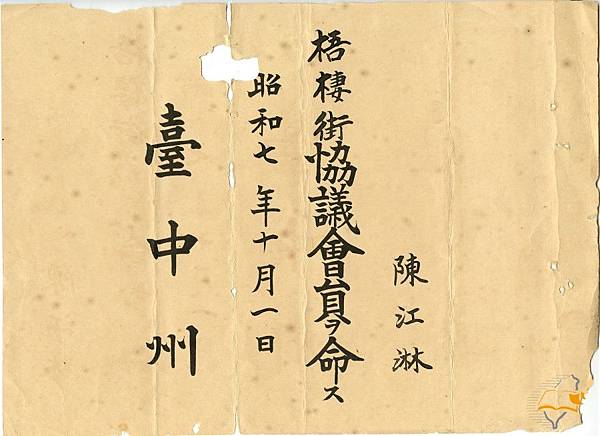 陳江淋
梧棲街協議會員ヲ命ス
昭和七年十月一日
臺中州